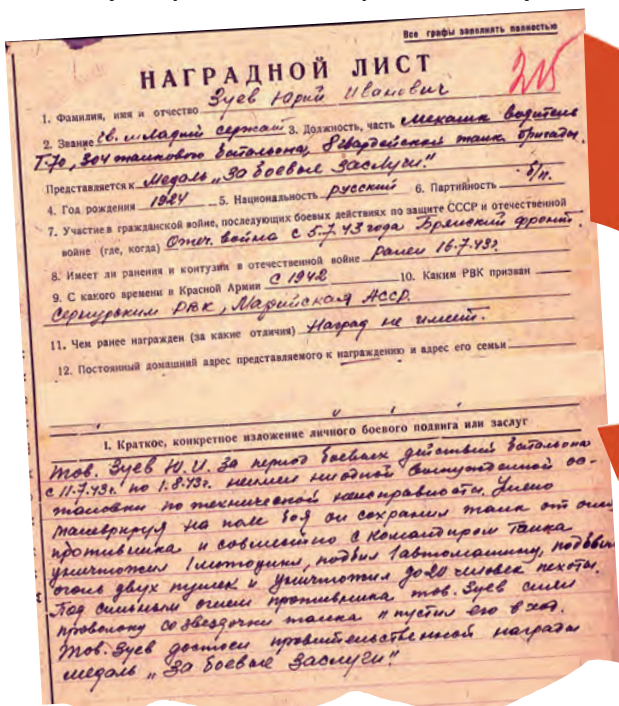 Все графы заполнять полностью
НАГРАДНОЙ ЛИСТ
215
1. Фамилия, имя и отчество Зуев Юрий Иванович
2. Звание Гв. младший сержант 3. Должность, часть механик водитель
Т-70, 304 танкового батальона, 8 гвардейской танк. бригады.
Представляется к Медаль „За боевые заслуги"
4. Год рождения 1924 5. Национальность русский 6. Партийность б/п.
7. Участие в гражданской войне, последующих боевых действиях по защите СССР и отечественной
войне (где, когда) Отеч. война с 5.7.43 года Брянский фронт.
8. Имеет ли ранения и контузии в отечественной войне Ранен 16.7.43г.
9. С какого времени в Красной Армии С 1942 10. Каким РВК призван
Сернурским РВК, Марийская АССР.
11. Чем ранее награжден (за какие отличия) Наград не имеет.
12. Постоянный домашний адрес представляемого к награждению и адрес его семьи
I. Краткое, конкретное изложение личного боевого подвига или заслуг
Тов. Зуев Ю.И. за период боевых действий батальона
с 11.7.43г. по 1.8.43г. не имел ни одной вынужденной ос-
тановки по технической неисправности. Умело
маневрируя на поле боя он сохранил танк от огня
противника и совместно с командиром танка
уничтожил 1 мотоцикл, подбил 1 автомашину, подавил
огонь двух пушек и уничтожил до 20 человек пехоты.
Под сильным огнем противника тов. Зуев снял
проволоку со звездочки танка и пустил его в ход.
Тов. Зуев достоен правительственной награды
медаль „За боевые заслуги"